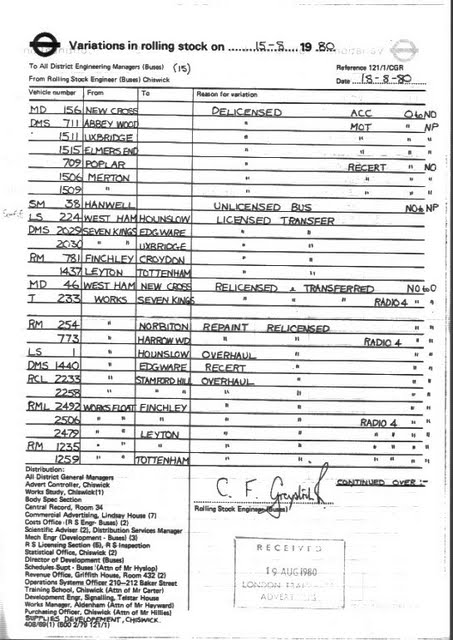 Variations in rolling stock on 15-8-1980
To All District Engineering Managers (Buses) (15)
Reference 121/1/CGR
From Rolling Stock Engineer (Buses) Chiswick
Date 15-8-80
Vehicle number From To Reason for variation
MD 156 NEW CROSS DELICENSED ACC O to NO
DMS 711 ABBEY WOOD " MOT " NP
1511 UXBRIDGE " " "
1515 ELMERS END " " "
709 POPLAR " RECERT " NO
1506 MERTON " " "
1509 " " " "
SM 38 HANWELL UNLICENSED BUS NO to NP
LS 224 WEST HAM HOUNSLOW LICENSED TRANSFER
DMS 2029 SEVEN KINGS EDGWARE " "
2030 " " UXBRIDGE " "
RM 781 FINCHLEY CROYDON " "
1437 LEYTON TOTTENHAM " "
MD 46 WEST HAM NEW CROSS RELICENSED & TRANSFERRED NO to O
T 233 WORKS SEVEN KINGS " " RADIO 4 " "
RM 254 " NORBITON REPAINT RELICENSED " "
773 " HARROW WD " " RADIO 4 " "
LS 1 " HOUNSLOW OVERHAUL " " "
DMS 1440 " EDGWARE RECERT " " "
RCL 2233 " STAMFORD HILL OVERHAUL " " "
2258 " " " " " " "
RML 2492 WORKS FLOAT FINCHLEY " " " "
2506 " " " " " RADIO 4 " "
2479 " " LEYTON " " " " " "
RM 1235 " " " " " " "
1259 " " TOTTENHAM " " " "
Distribution:
All District General Managers
Advert Controller, Chiswick
Works Study, Chiswick (1)
Body Spec Section
Central Record, Room 34
Commercial Advertising, Lindsay House (7)
Costs Office (R S Engr- Buses) (2)
Scientific Adviser (2), Distribution Services Manager
Mech Engr (Development - Buses) (3)
R S Licensing Section (5), R S Inspection
Statistical Office, Chiswick (2)
Director of Development (Buses)
Schedules Supt - Buses (Attn of Mr Hyslop)
Revenue Office, Griffith House, Room 432 (2)
Operations Systems Officer 210-212 Baker Street
Training School, Chiswick (Attn of Mr Carter)
Development Engr, Signalling, Telstar House
Works Manager, Aldenham (Attn of Mr Hayward)
Purchasing Officer, Chiswick (Attn of Mr Hillies)
SUPPLIES DEVELOPEMENT, CHISWICK.
408/89(1) (800 2/79 121/1)
CONTINUED OVER :-
C. F.
Rolling Stock Engineer (Buses)
RECEIVED
19 AUG 1980
LONDON